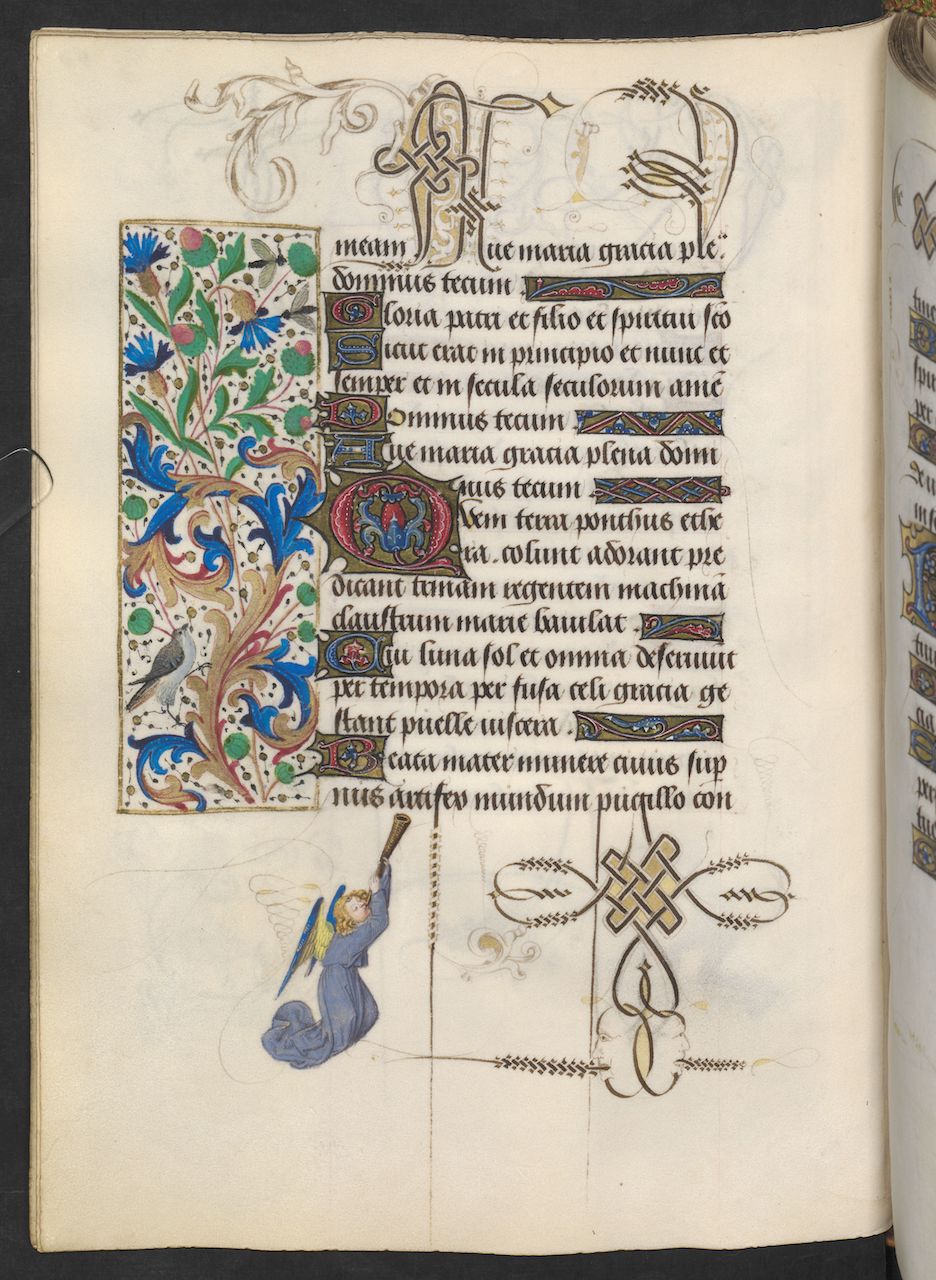 meam Aue maria gracia ple.
dominus tecum
Gloria patri et filio et spiritui sco
Sicut erat in principio et nunc et
semper et in secula seculorum ame
Dominus tecum
Aue maria gracia plena domi
nus tecum
Quem terra ponthus ethe
ra. colunt adorant pre
dicant trinam regentem machina
claustrum marie baiulat.
Cui luna sol et omnia deseruiut
per tempora per fusa celi gracia ge
stant puelle uiscera.
Beata mater munere cuius sup
nus artifex mundum pugillo con